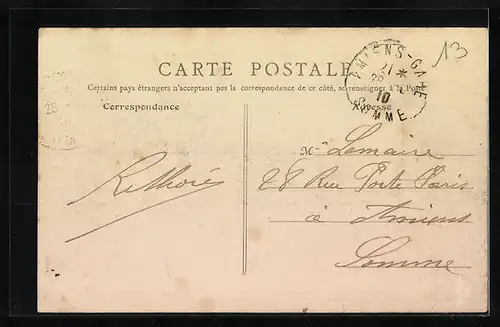 13
CARTE POSTALE
AMIENS-GARE
21
26 *
10
SOMME
Certains pays étrangers n'acceptant pas la correspondance de ce côté, se renseigner à la Poste
Correspondance
Adresse
M Lemaire
28 Rue Porte Paris
à Amiens
Somme